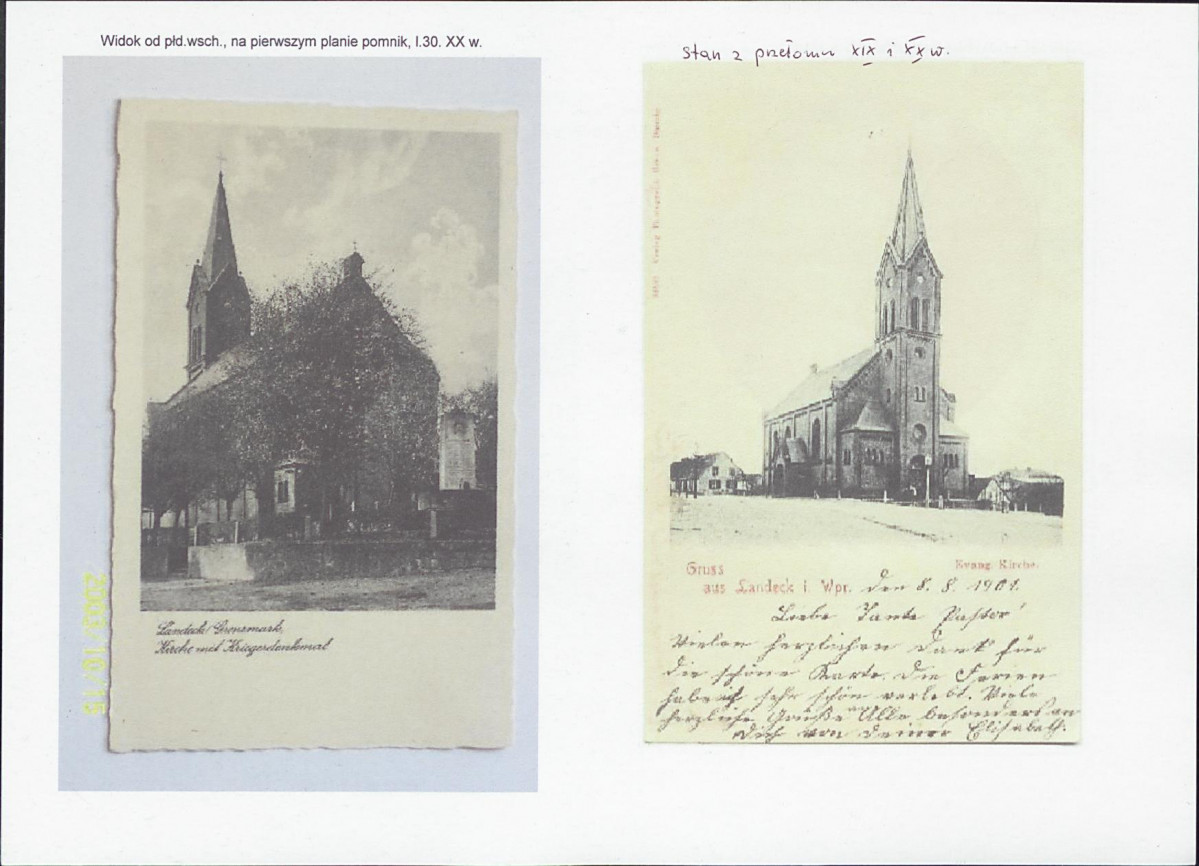 Widok od płd.wsch., na pierwszym planie pomnik, l.30. XX w.
2003/10/15
Landeck/Grenzmark,
Kirche mit Kriegerdenkmal
Stan z przełomu XIX i XX w.
Verlag
Evang. Kirche.
Gruss
aus Landeck i. Wpr. Den 8. 8. 1901.
Liebe Tante Pastor!
Vielen herzlichen Dank für
die schöne Karte. Die Ferien
habe ich sehr schön verlebt. Viele
herzliche Grüße an Alle besonders an
Dich von deiner Elisabeth.